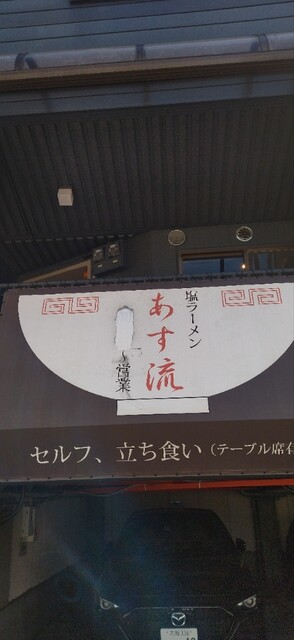 塩ラーメン
あす流
～営業
セルフ、立ち食い(テーブル席